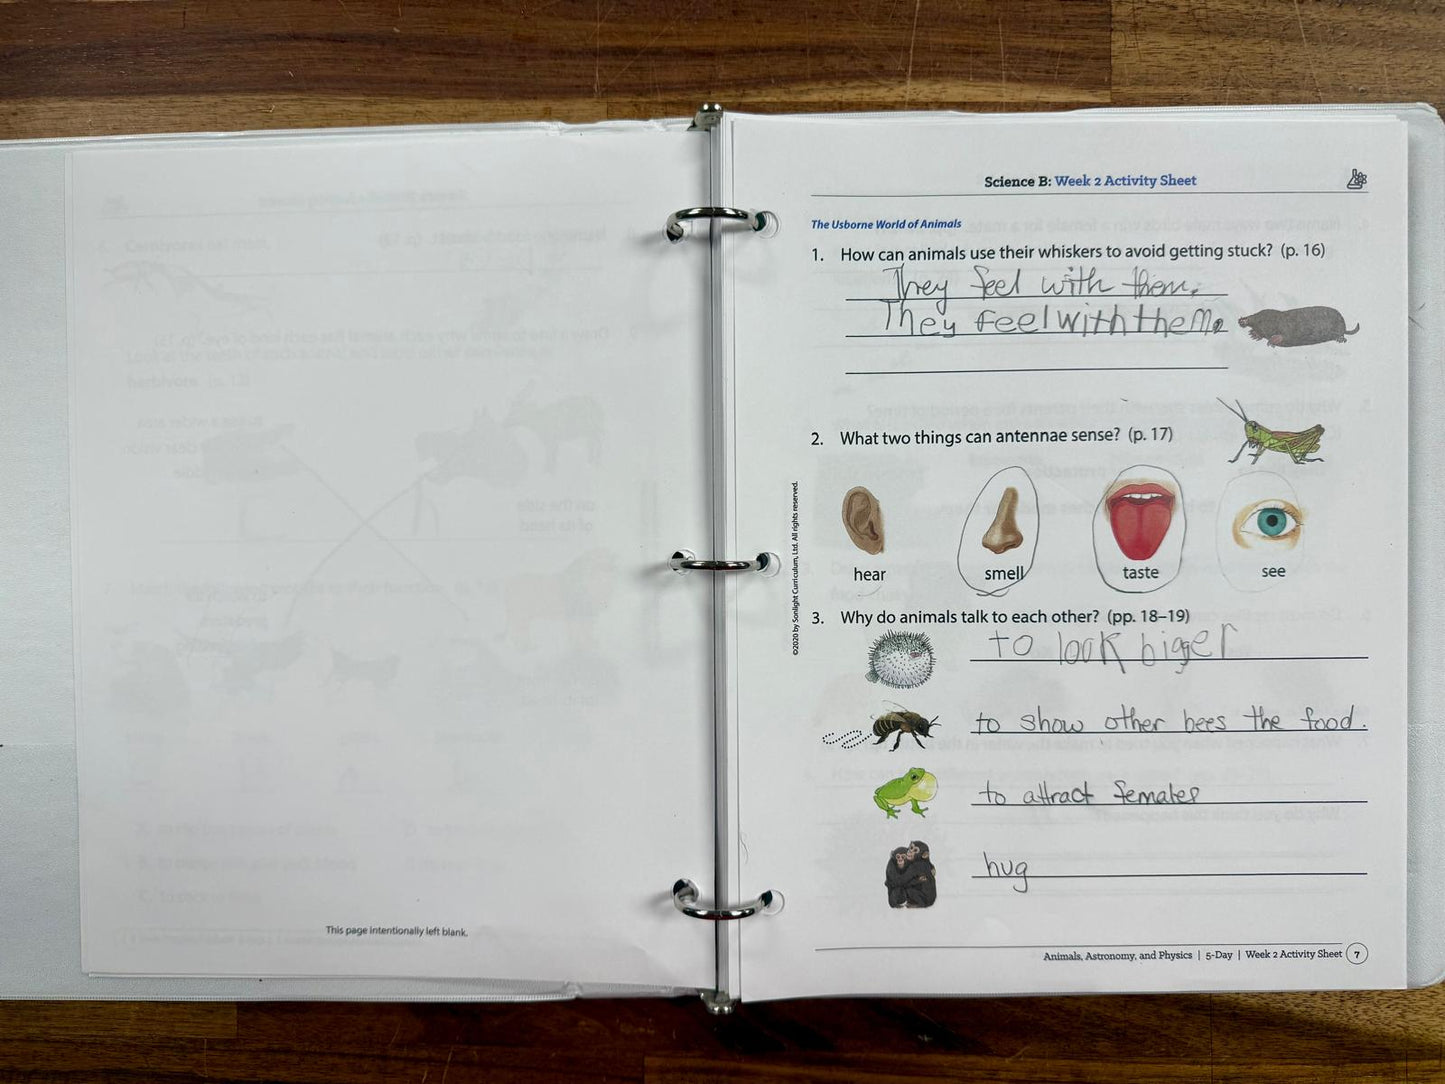 This page intentionally left blank.
Science B: Week 2 Activity Sheet
The Usborne World of Animals
1. How can animals use their whiskers to avoid getting stuck? (p. 16)
They feel with them.
They feel with them.
2. What two things can antennae sense? (p. 17)
hear smell taste see
3. Why do animals talk to each other? (pp. 18–19)
to look biger
to show other bees the food.
to attract females
hug
©2020 by Sonlight Curriculum, Ltd. All rights reserved.
Animals, Astronomy, and Physics | 5-Day | Week 2 Activity Sheet 7